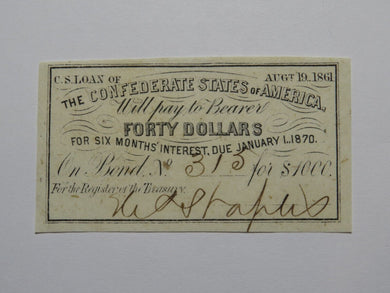 C.S. LOAN OF AUGT. 19. 1861.
THE CONFEDERATE STATES OF AMERICA.
Will pay to Bearer
FORTY DOLLARS
FOR SIX MONTHS' INTEREST, DUE JANUARY 1. 1870.
On Bond, No 313 for $1000.
For the Register of the Treasury.
Staples